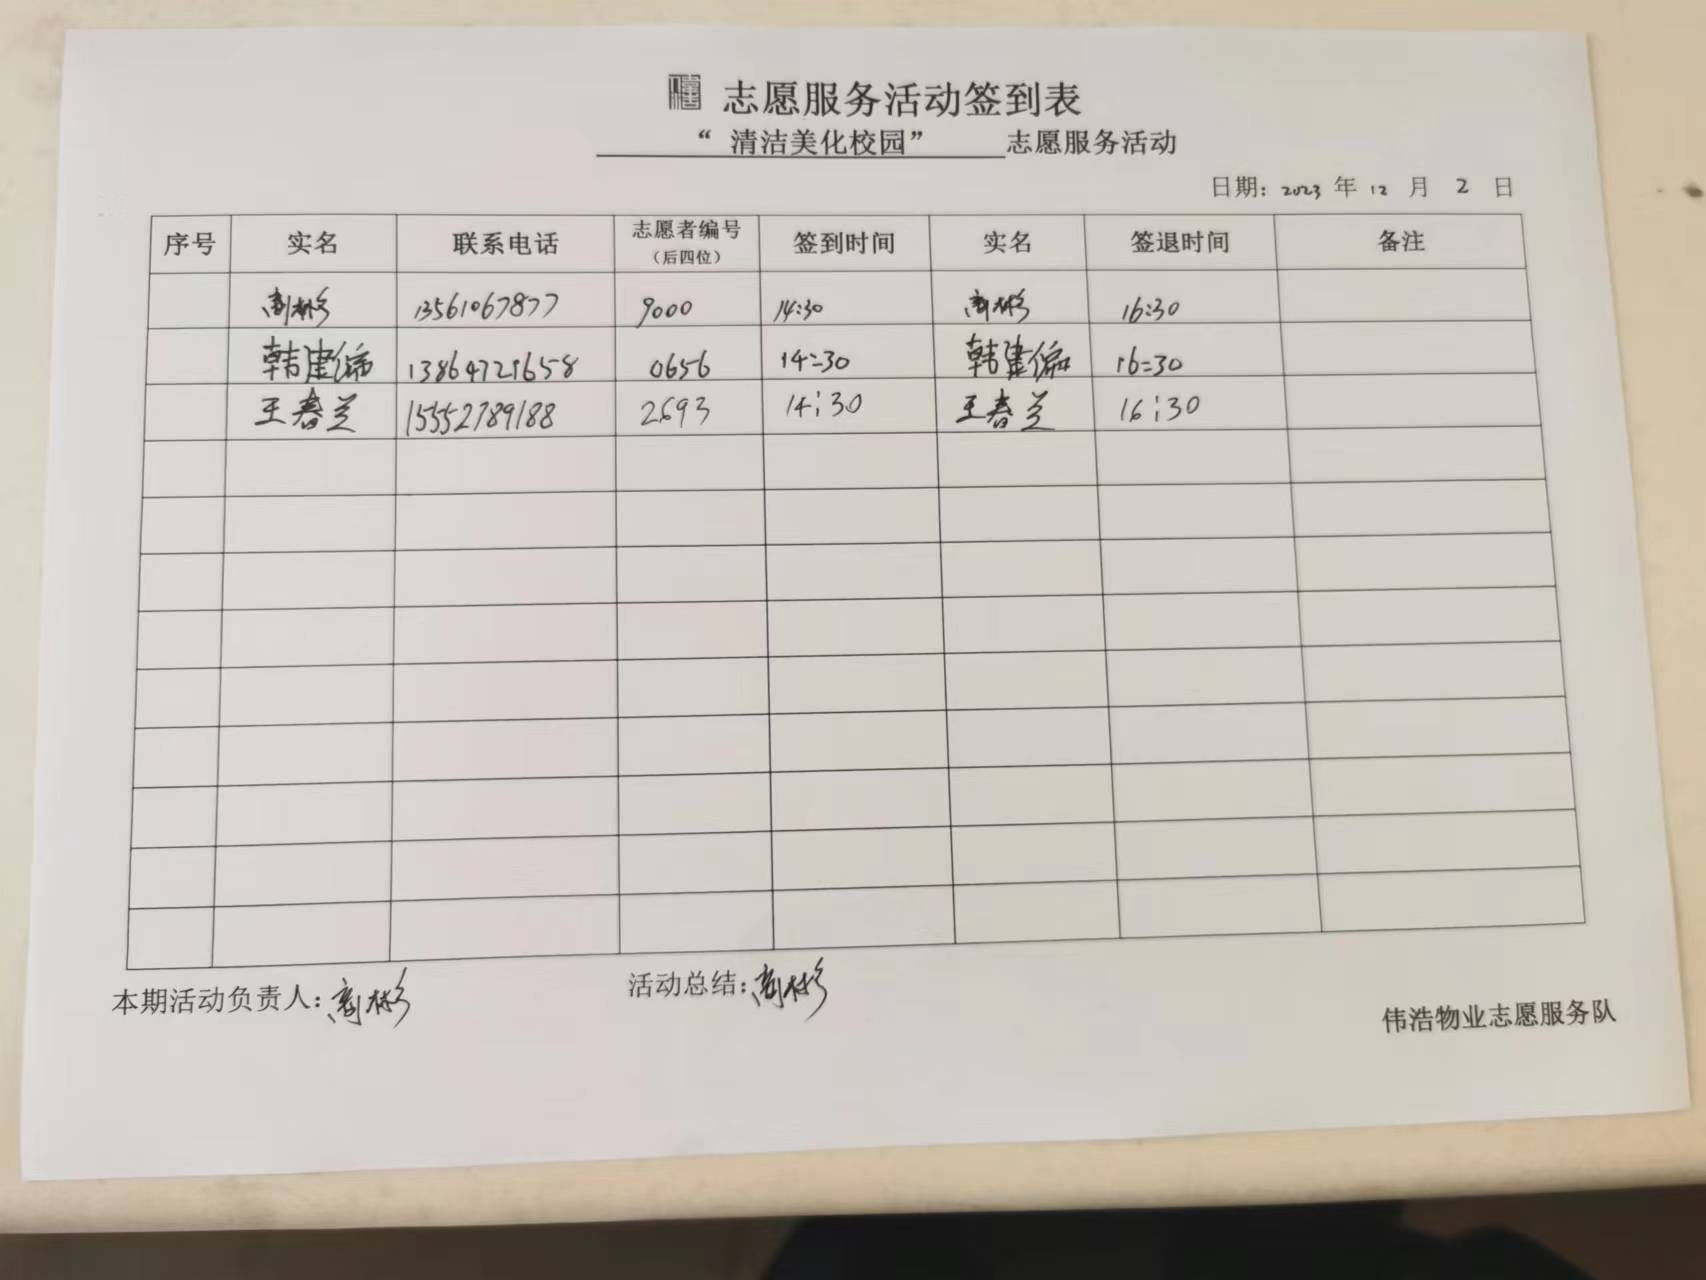 志愿服务活动签到表
“清洁美化校园” 志愿服务活动
日期: 2023 年 12 月 2 日
序号 实名 联系电话 志愿者编号 签到时间 实名 签退时间 备注
(后四位)
商彬 13561067877 9000 14:30 商彬 16:30
韩建 13864721658 0656 14:30 韩建 16:30
王春兰 15552789188 2693 14:30 王春兰 16:30
本期活动负责人: 商彬 活动总结: 商彬
伟浩物业志愿服务队